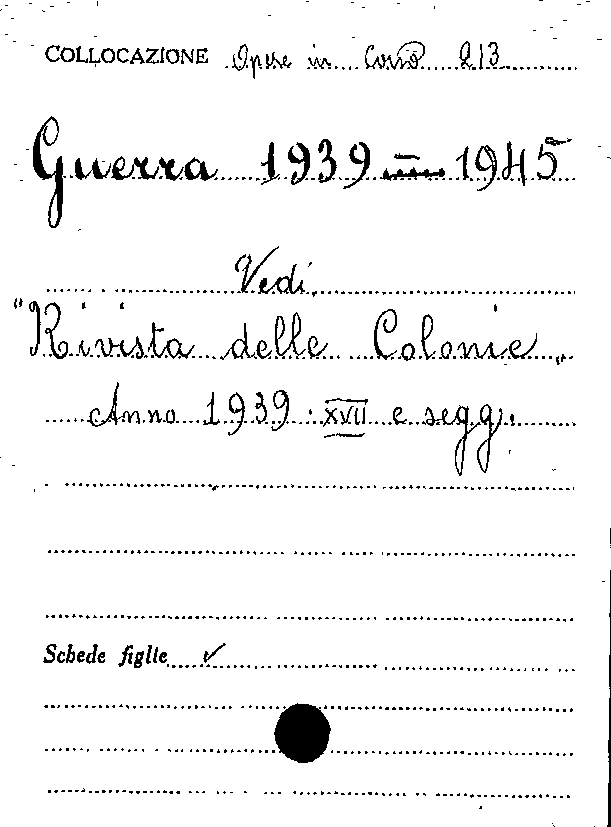 COLLOCAZIONE Opere in Corso 213
Guerra 1939 — 1945
Vedi
"Rivista delle Colonie„
Anno 1939 · XVII e segg.
Schede figlie ✓